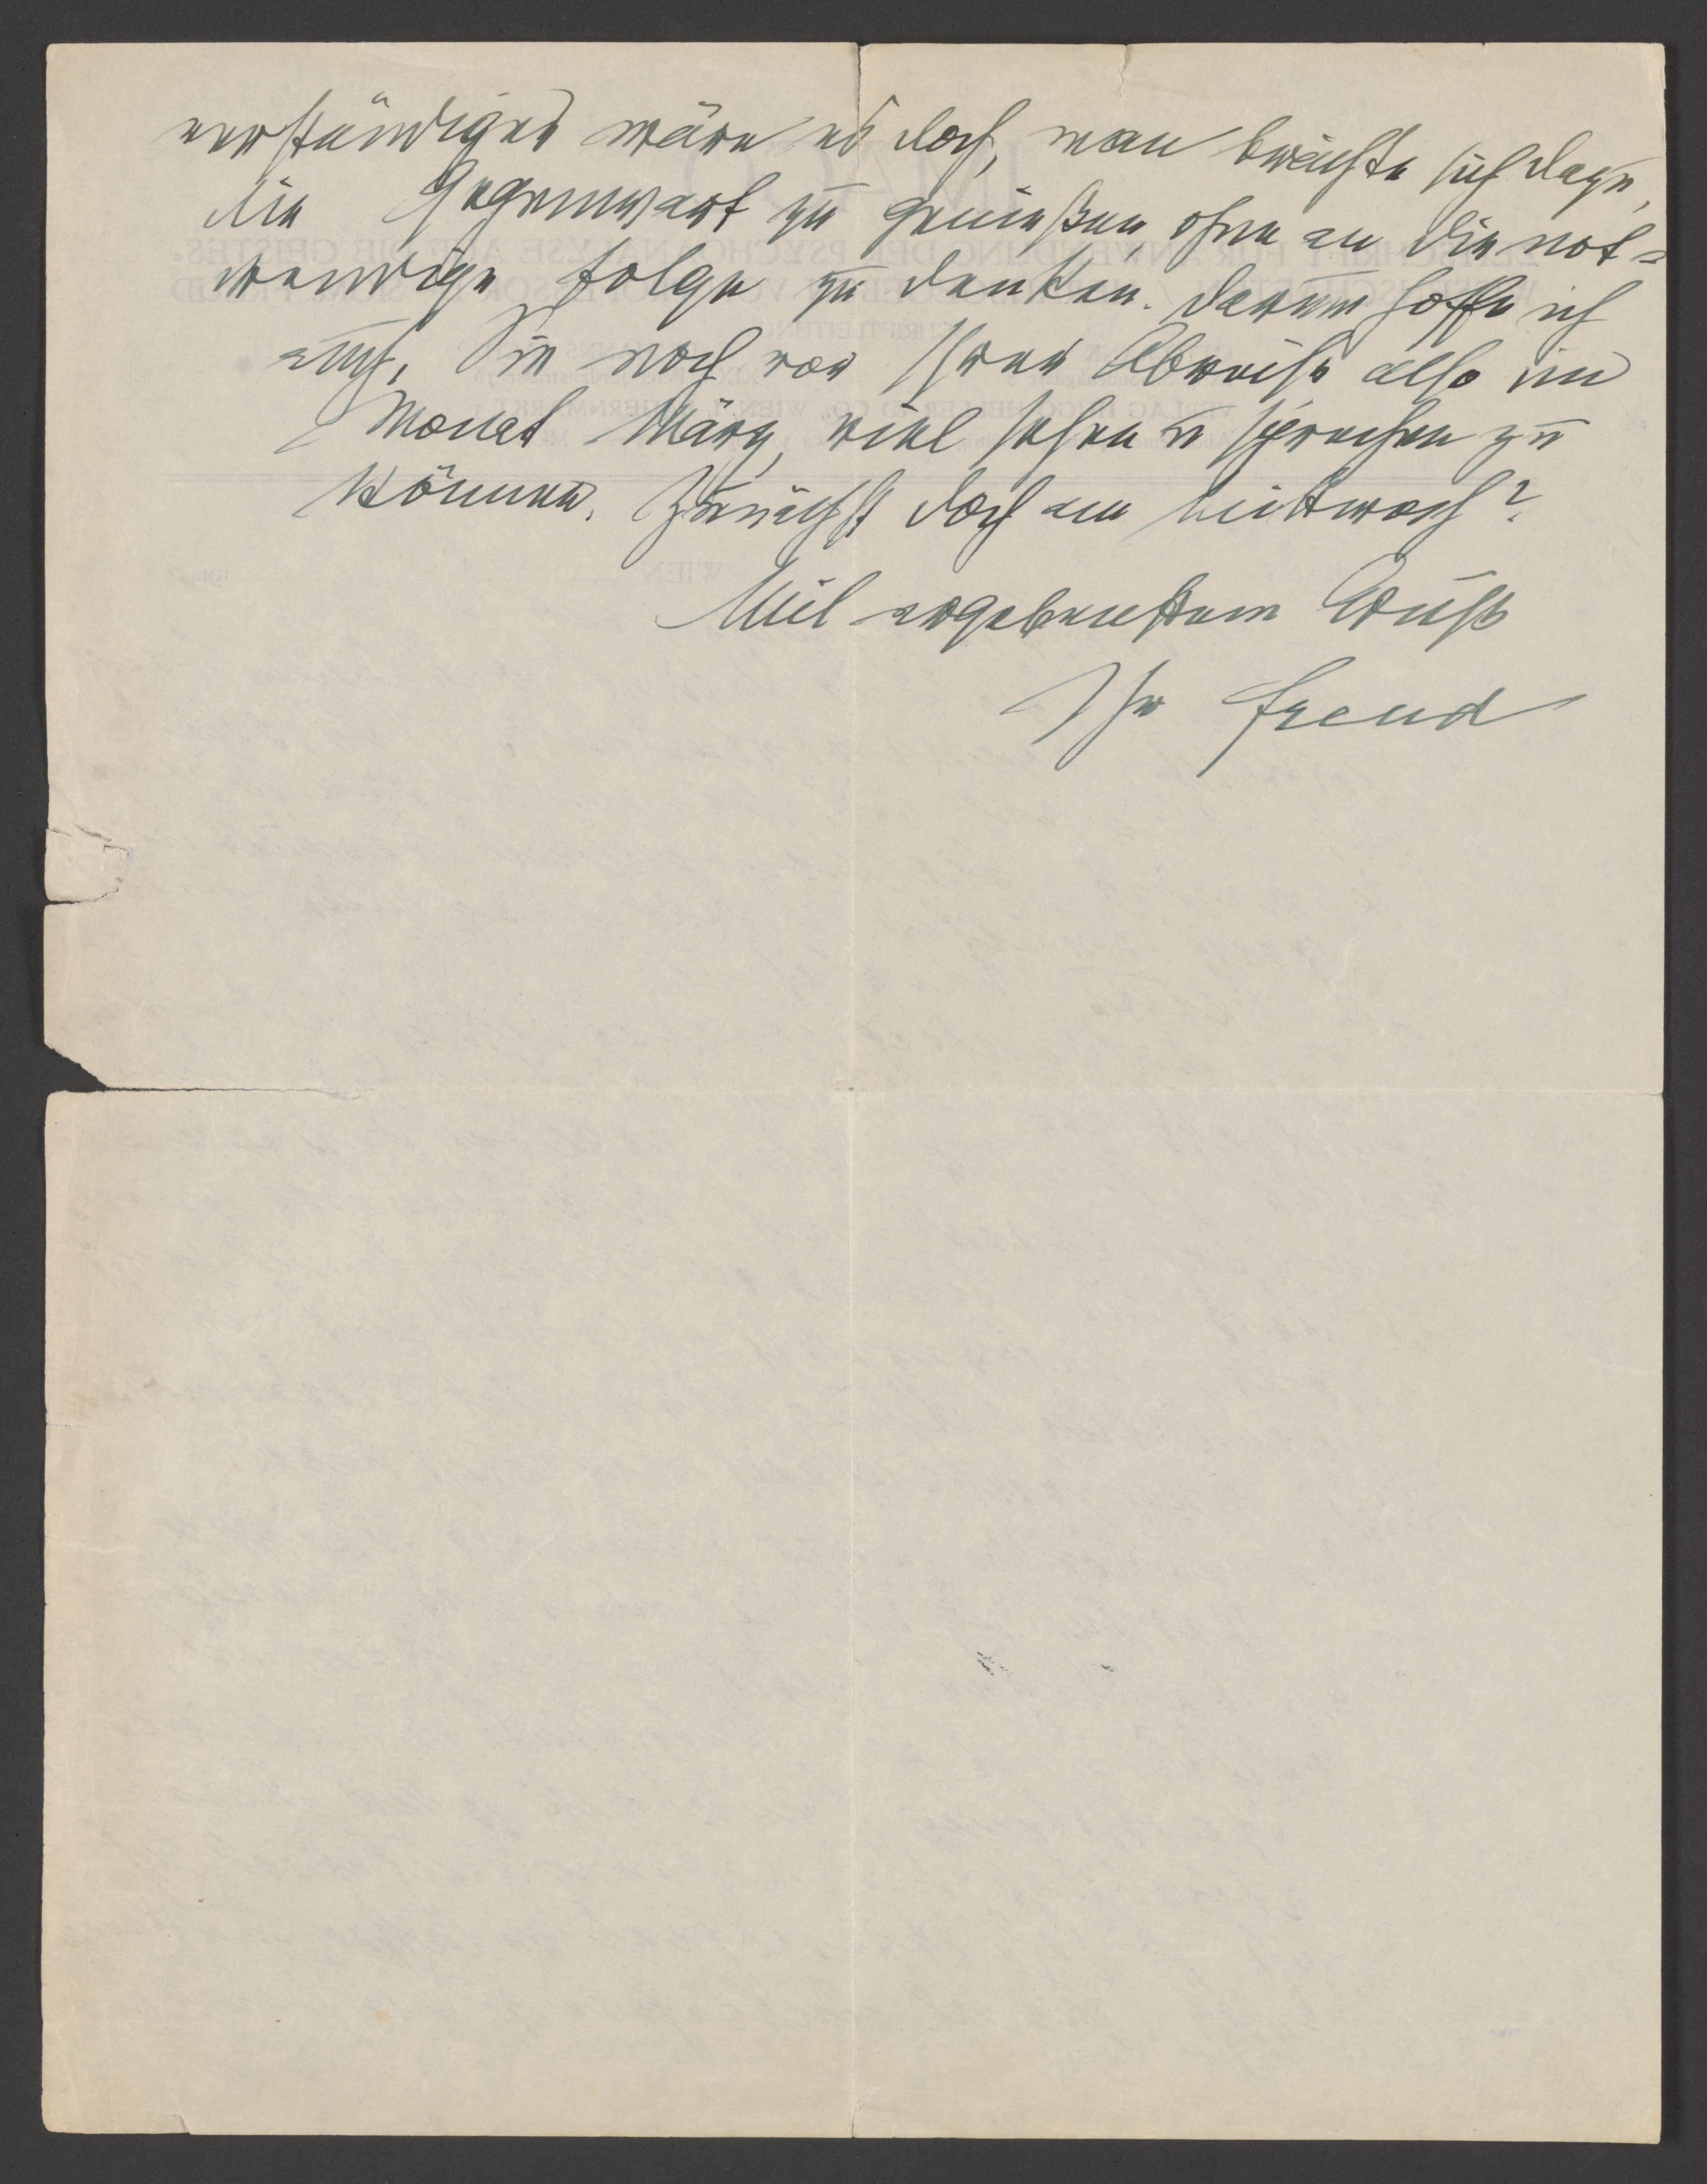 verständiger wäre es doch, man brächte sich dazu,
die Gegenwart zu genießen, ohne an die not=
wendige Folge zu denken. Darum hoffe ich
auch, Sie noch vor Ihrer Abreise also im
Monat März, viel sehen u sprechen zu
können. Zunächst doch am Mittwoch?
Mit ergebenstem Gruß
Ihr Freud